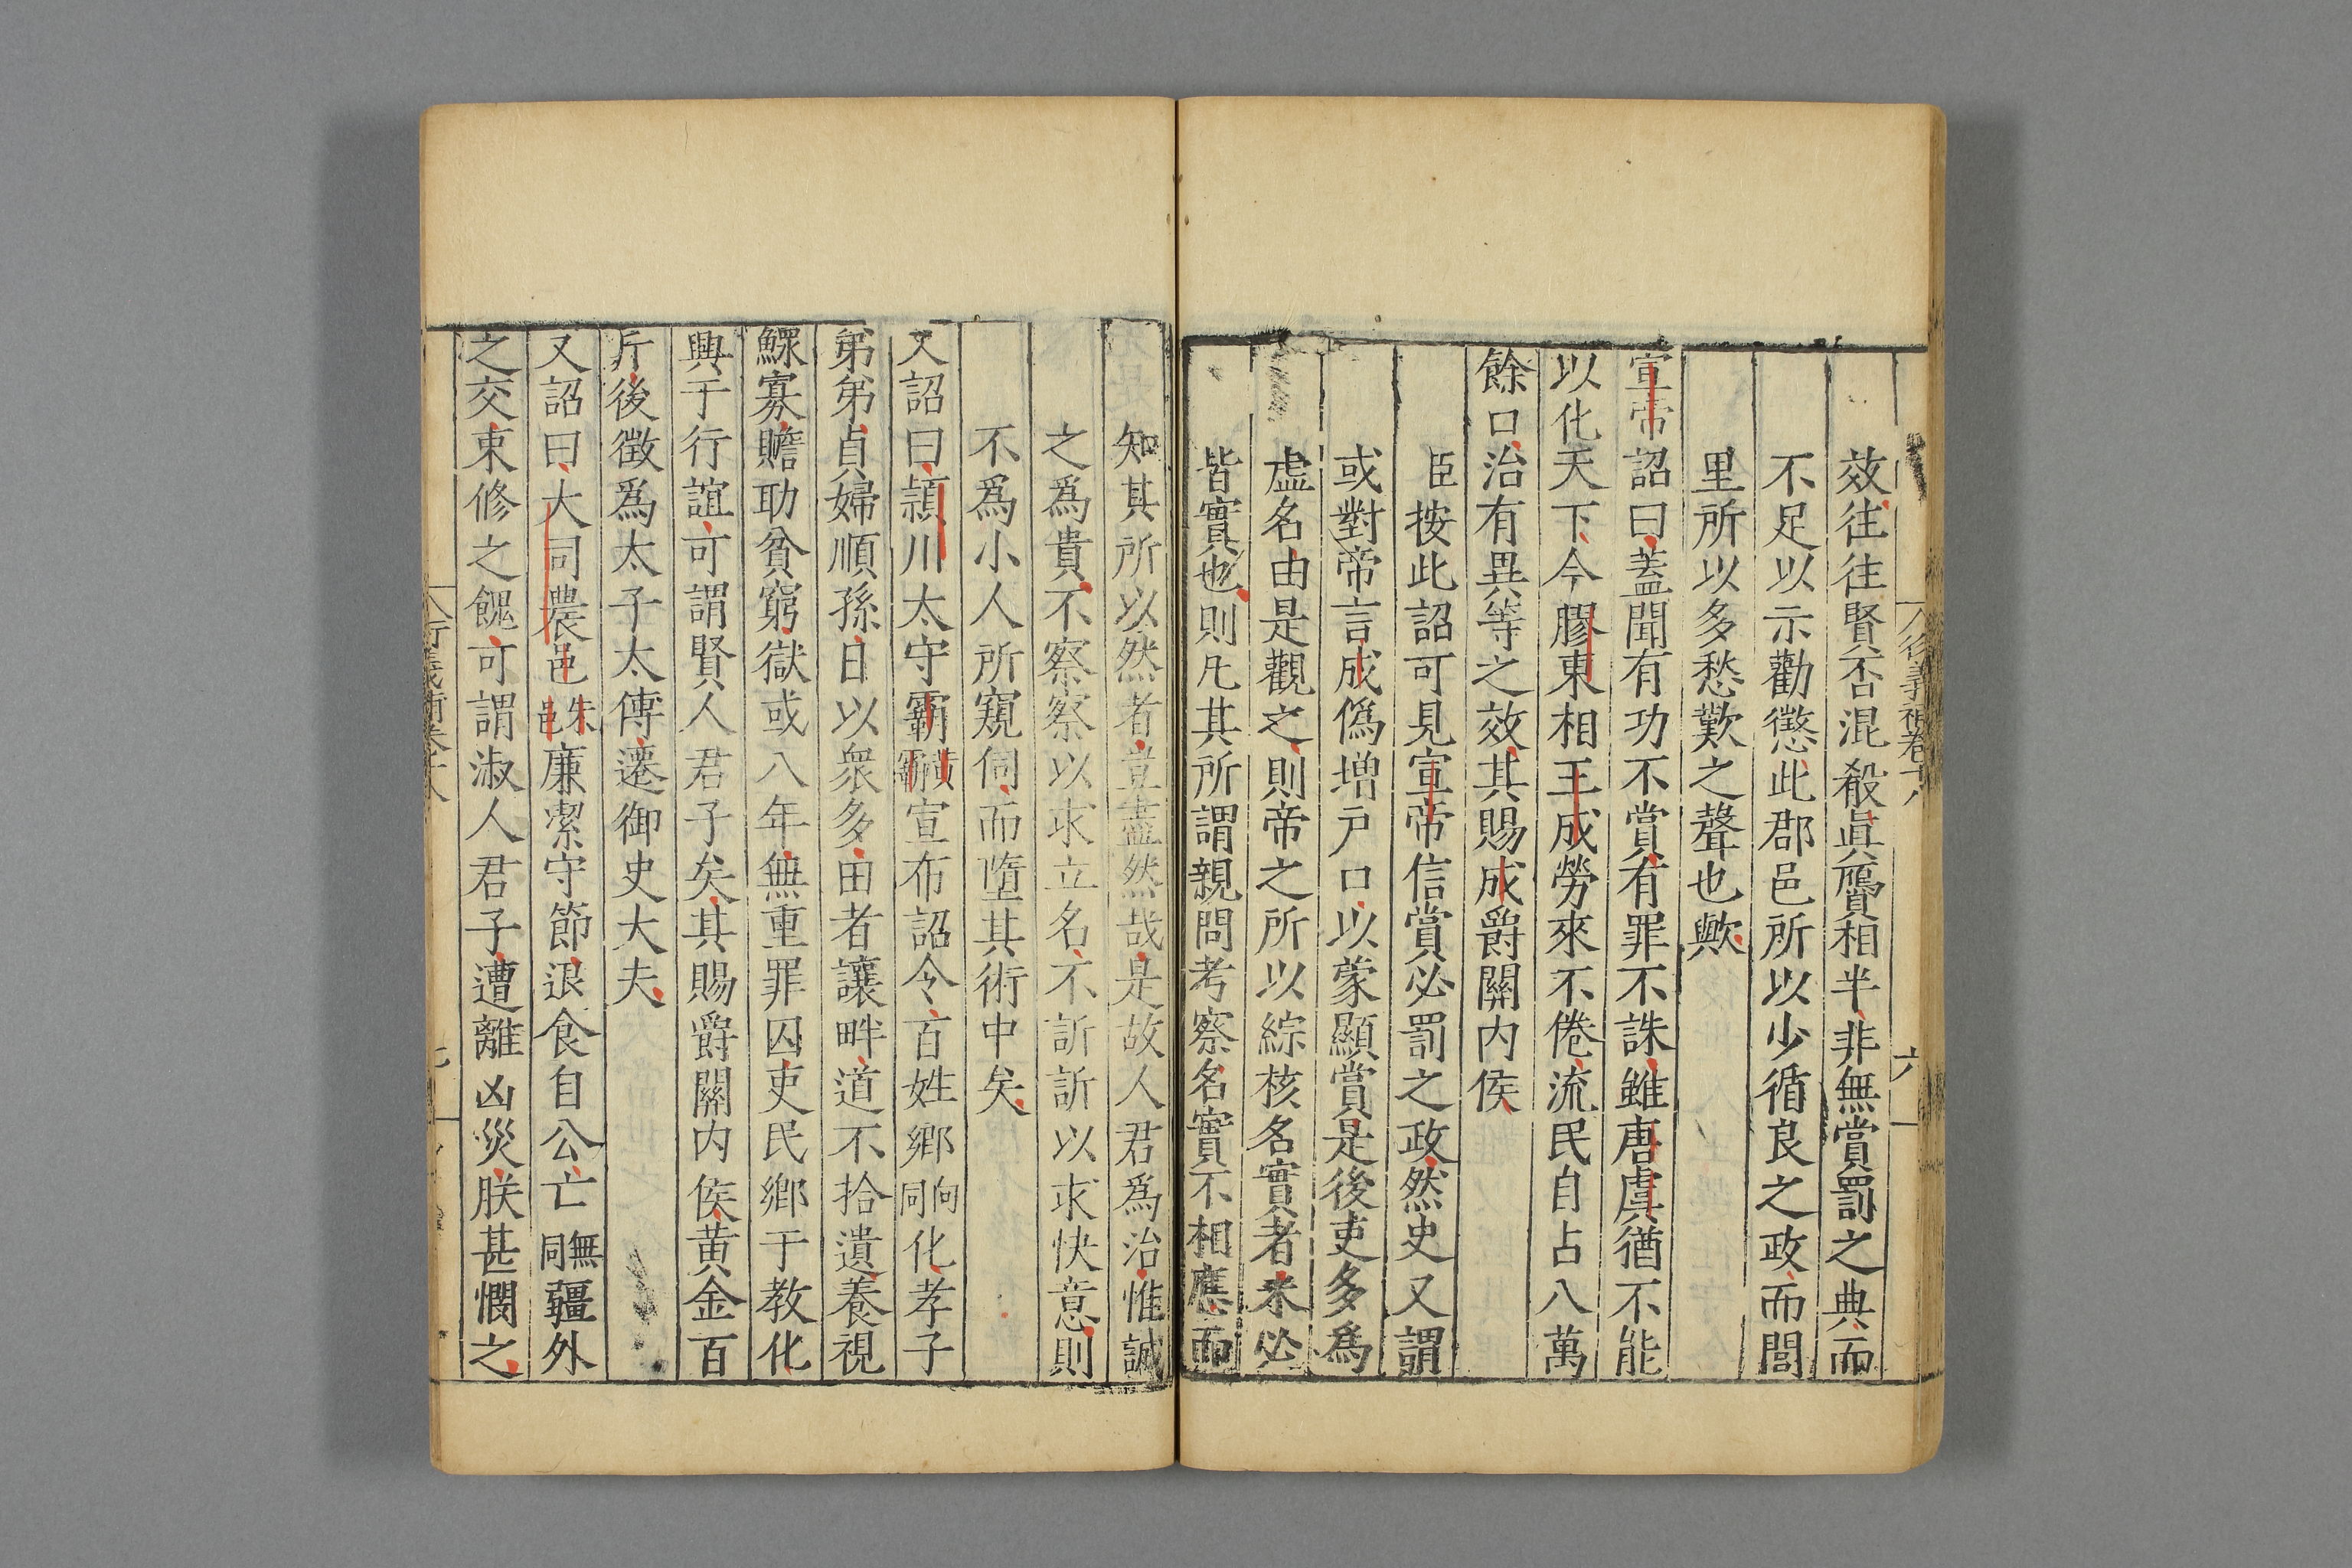 效往往賢否混殽眞贗相半非無賞罰之典而
不足以示勸懲此郡邑所以少循良之政而閭
里所以多愁歎之聲也歟
宣帝詔曰蓋聞有功不賞有罪不誅雖唐虞猶不能
以化天下今膠東相王成勞來不倦流民自占八萬
餘口治有異等之效其賜成爵關內侯
臣按此詔可見宣帝信賞必罰之政然史又謂
或對帝言成僞增戶口以蒙顯賞是後吏多爲
虛名由是觀之則帝之所以綜核名實者未必
皆實也則凡其所謂親問考察名實不相應而
知其所以然者豈盡然哉是故人君爲治惟誠
之爲貴不察察以求立名不訢訢以求快意則
不爲小人所窺伺而墮其術中矣
又詔曰潁川太守霸黃霸宣布詔令百姓鄉向同化孝子
弟弟貞婦順孫日以衆多田者讓畔道不拾遺養視
鰥寡贍助貧窮獄或八年無重罪囚吏民鄉于教化
興于行誼可謂賢人君子矣其賜爵關内侯黃金百
斤後徵爲太子太傅遷御史大夫
又詔曰大司農邑朱邑廉潔守節退食自公亡無同疆外
之交束修之餽可謂淑人君子遭離凶災朕甚憫之